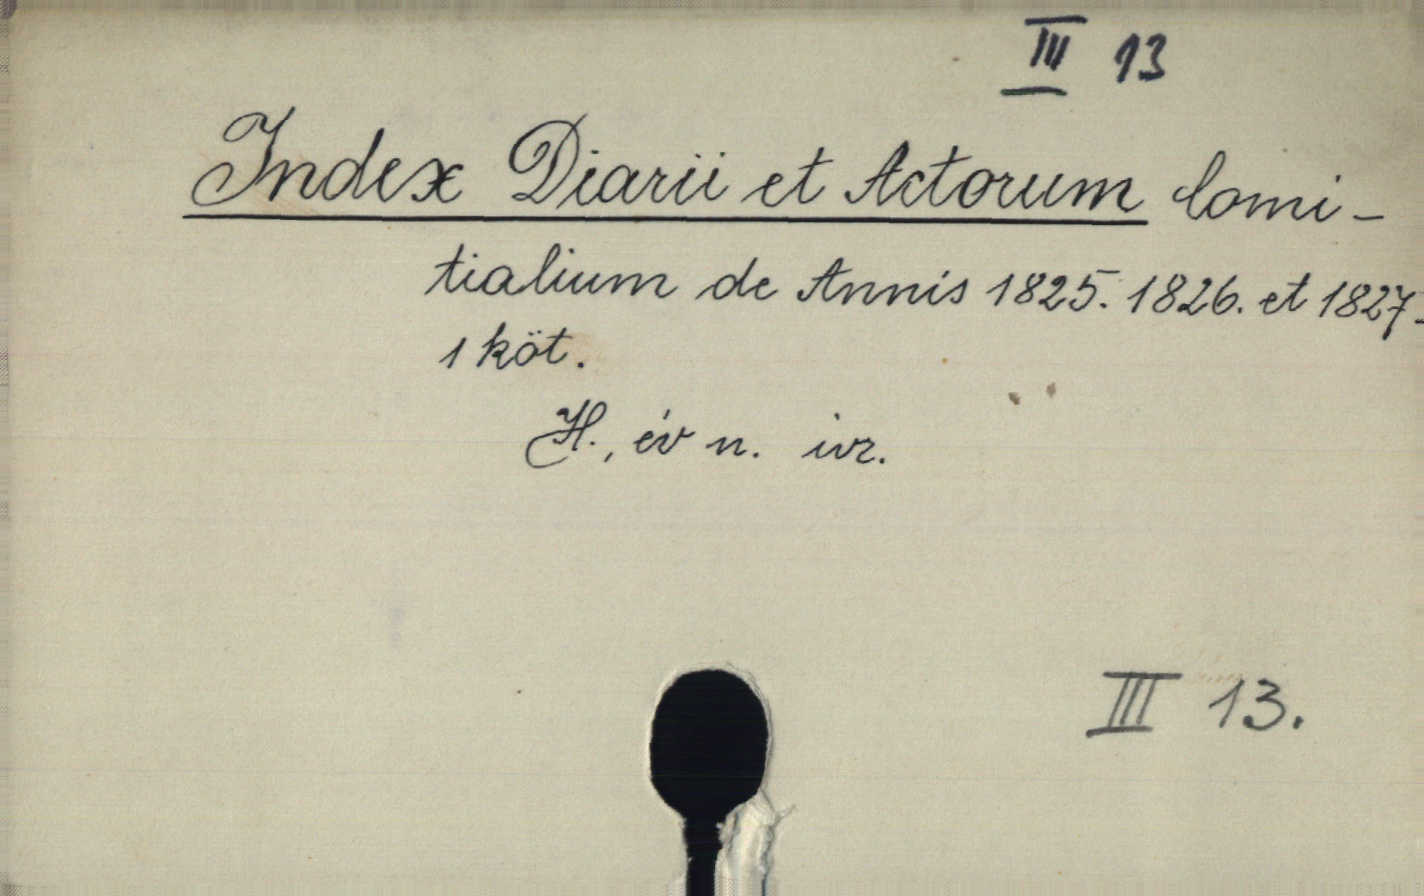 III 13
Index Diarii et Actorum Comi-
tialium de Annis 1825. 1826. et 1827.
1 köt.
H., év n. ivr.
III 13.